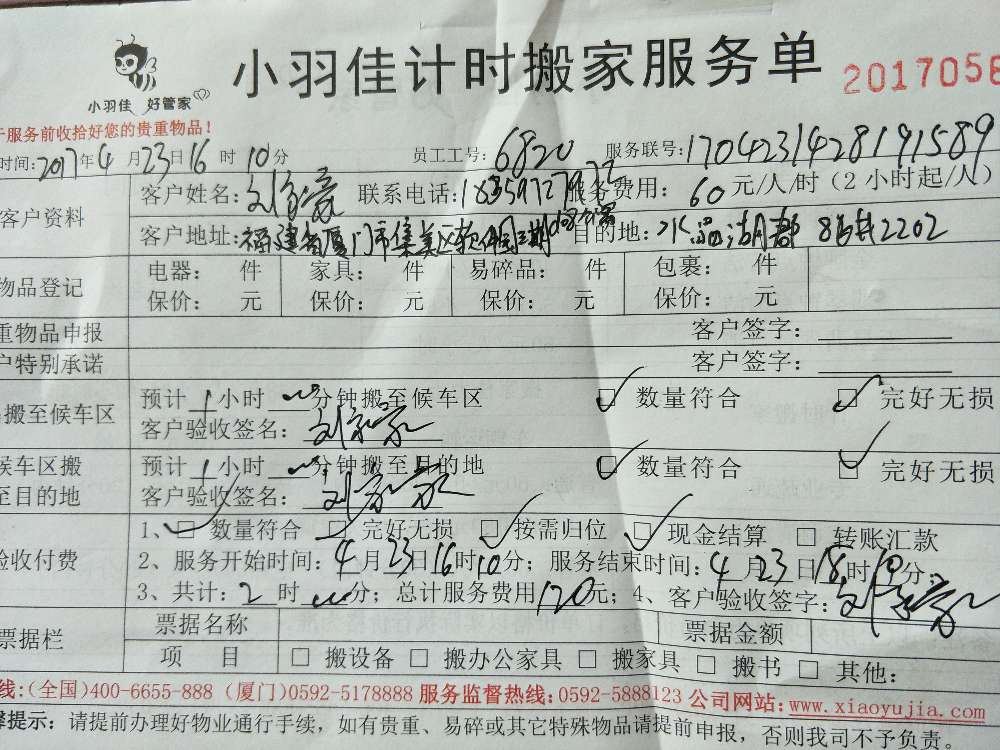 小羽佳计时搬家服务单
2017058
小羽佳 好管家
于服务前收拾好您的贵重物品！
时间：2017年4月23日16时10分 员工工号：6820 服务联号：1704231428191589
客户资料
客户姓名： 联系电话： 服务费用：60元/人/时（2小时起/人）
客户地址：福建省厦门市集美区软件园三期 目的地：水晶湖郡 2202
物品登记
电器： 件 家具： 件 易碎品： 件 包裹： 件
保价： 元 保价： 元 保价： 元 保价： 元
重物品申报 客户签字：
户特别承诺 客户签字：
搬至候车区
预计 1 小时 分钟搬至候车区 数量符合 完好无损
客户验收签名：
候车区搬
至目的地
预计 1 小时 分钟搬至目的地 数量符合 完好无损
客户验收签名：
验收付费
1、数量符合 完好无损 按需归位 现金结算 转账汇款
2、服务开始时间：4月23日16时10分；服务结束时间：4月23日18时10分；
3、共计：2时 分；总计服务费用120元；4、客户验收签字：
票据栏
票据名称 票据金额
项 目 搬设备 搬办公家具 搬家具 搬书 其他：
线：(全国)400-6655-888 (厦门)0592-5178888 服务监督热线：0592-5888123 公司网站：www.xiaoyujia.com
馨提示：请提前办理好物业通行手续，如有贵重、易碎或其它特殊物品请提前申报，否则我司不予负责。